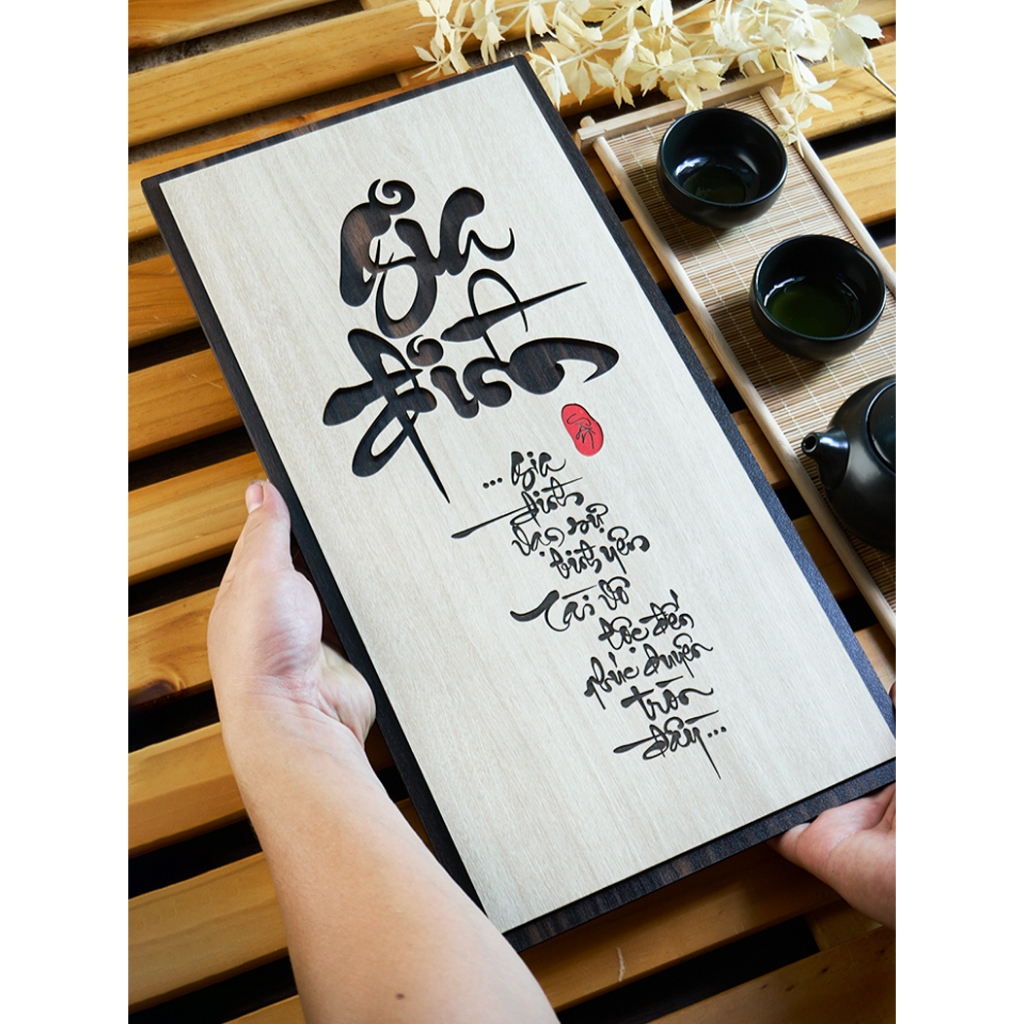 Gia
đình
... Gia
đình
vạn sự
bình yên
Tài vô
lộc đến
phúc duyên
tròn
đầy...